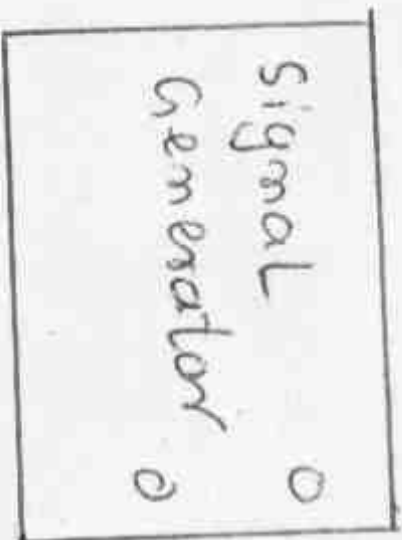 Signal
Generator